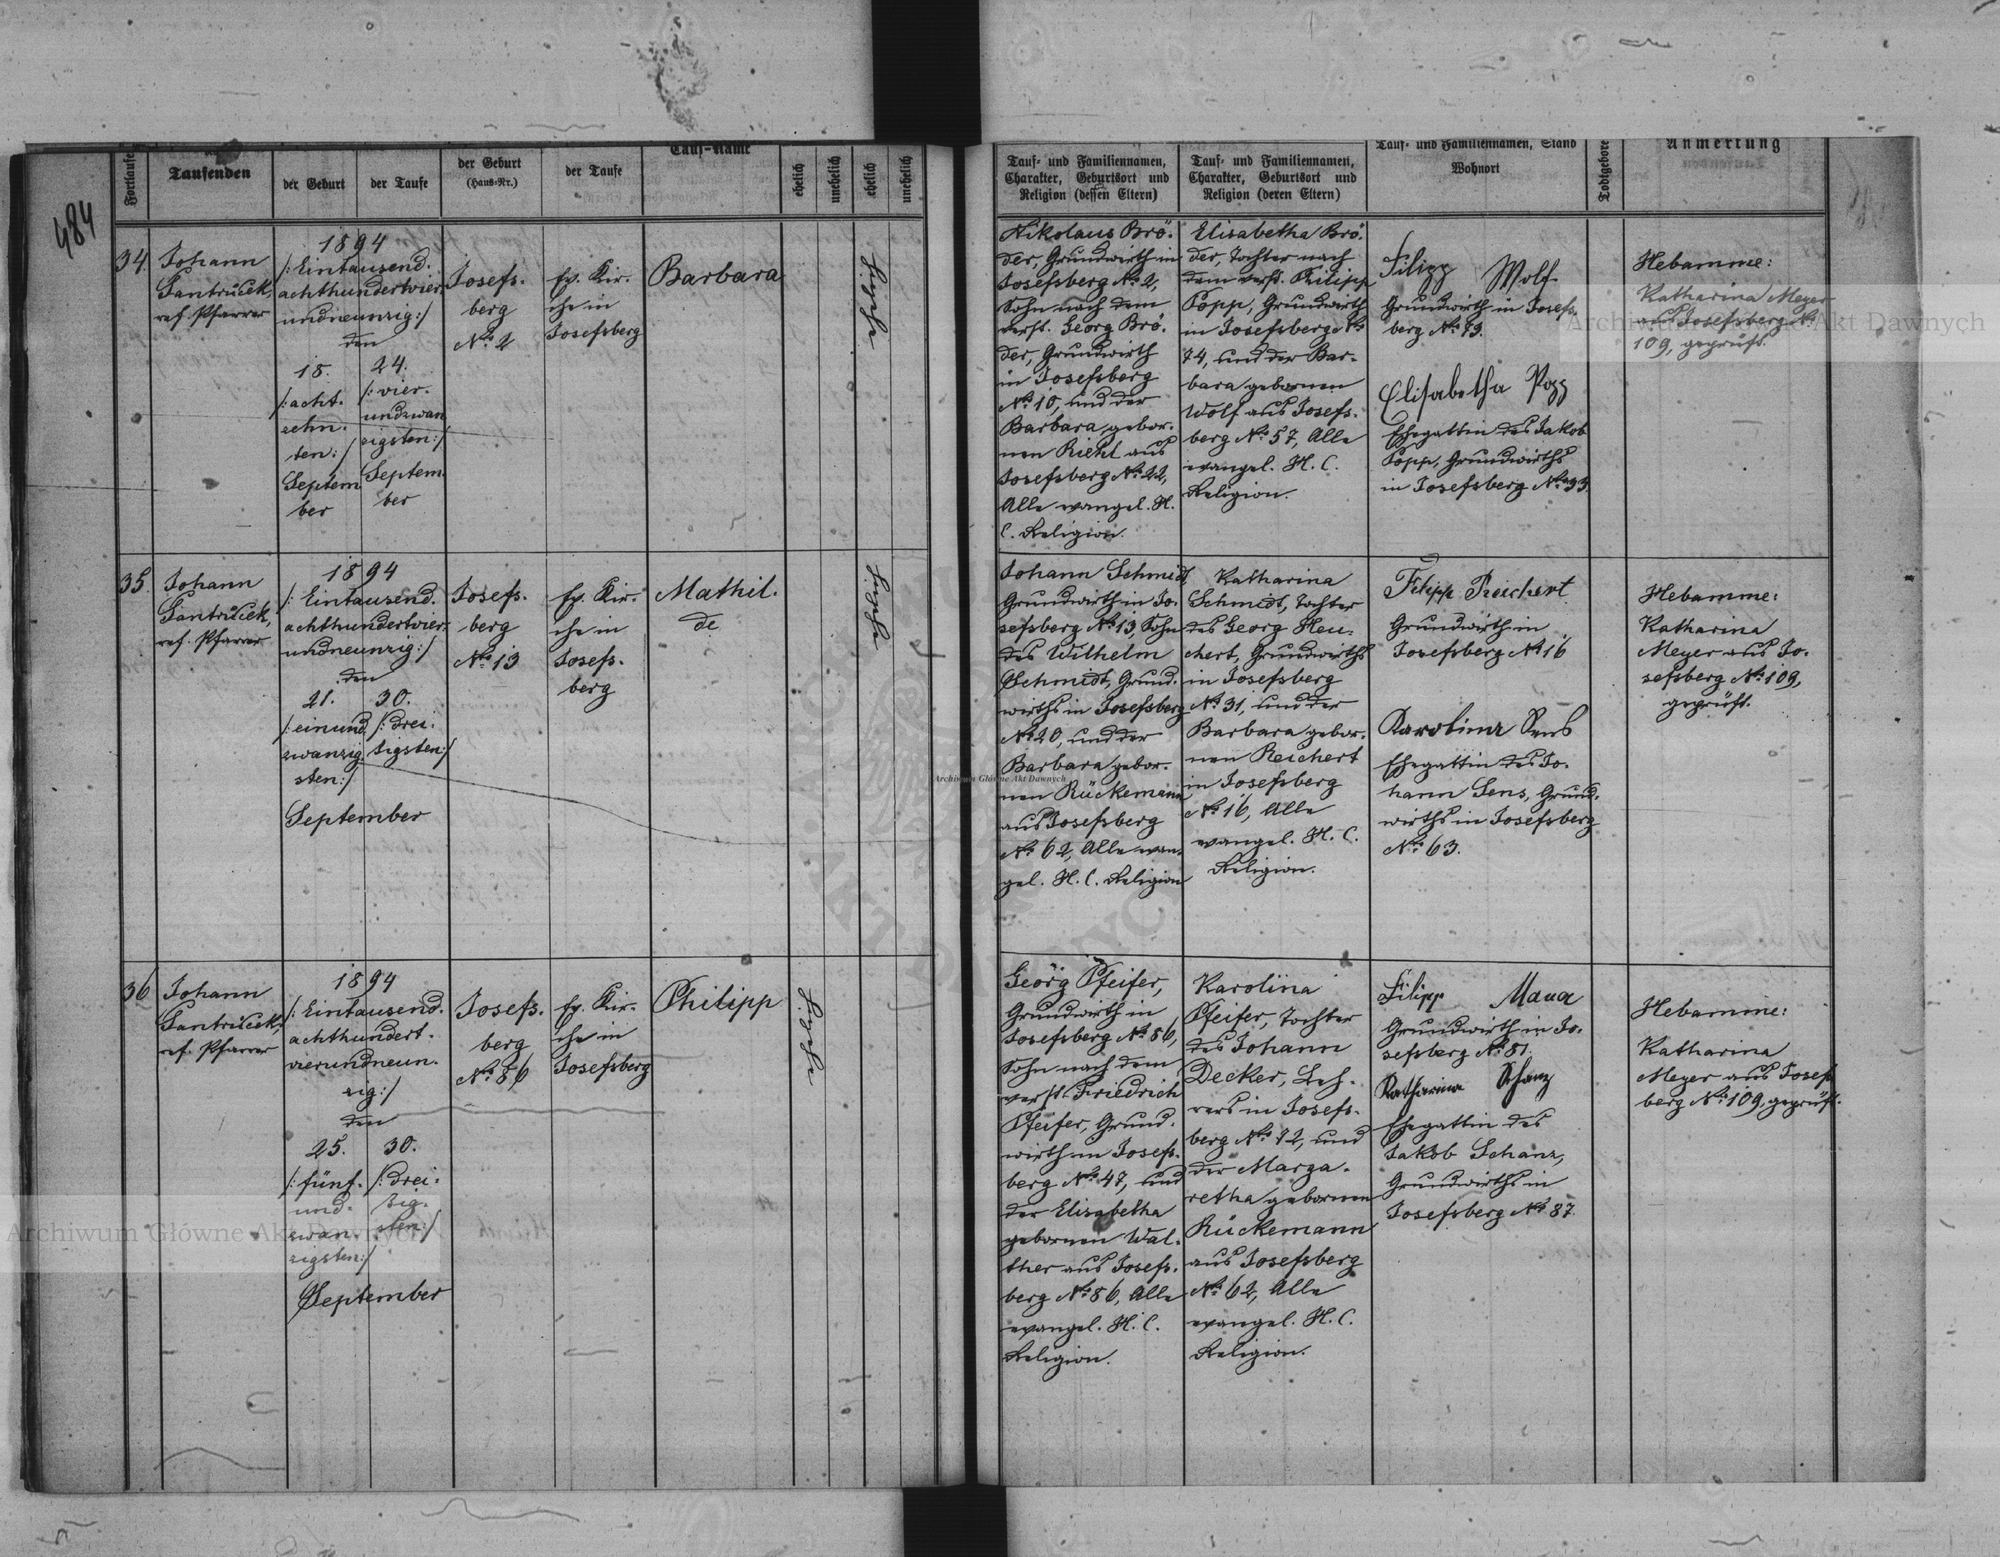 484
Fortlaufe
Taufenden
der Geburt
der Taufe
der Geburt
(Haus-Nr.)
der Taufe
Tauf-Name
ehelich
unehelich
ehelich
unehelich
Tauf- und Familiennamen,
Charakter, Geburtsort und
Religion (dessen Eltern)
Tauf- und Familiennamen,
Charakter, Geburtsort und
Religion (deren Eltern)
Tauf- und Familiennamen, Stand
Wohnort
Todtgebore
Anmerkung
34.
Johann
ref. Pfarrer
1894
/: Eintausend.
achthundertvier
undneunzig:/
den
18.
/: acht.
zehn.
ten:/
Septem
ber
24.
/: vier.
undzwan
zigsten:/
Septem.
ber
Josefs.
berg
No. 2
ev. Kir.
che in
Josefsberg
Barbara
Nikolaus Brö.
der, Grundwirth in
Josefsberg No. 2,
Sohn nach dem
verst. Georg Brö.
der, Grundwirth
in Josefsberg
No. 10, und der
Barbara gebor.
nen Riehl aus
Josefsberg No. 22,
Alle evangel. H.
C. Religion.
Elisabetha Brö.
der, Tochter nach
dem verst. Philipp
Popp, Grundwirth
in Josefsberg No.
74, und der Bar-
bara gebornen
Wolf aus Josefs.
berg No. 57, Alle
evangel. H. C.
Religion.
Filipp Wolf
Grundwirth in Josefs.
berg No. 79.
Elisabetha Popp
Ehegattin des Jakob
Popp, Grundwirths
in Josefsberg No. 93.
Hebamme:
Katharina Meyer
aus Josefsberg No.
109, geprüft.
35.
Johann
ref. Pfarrer
1894
/: Eintausend.
achthundertvier
undneunzig:/
den
21.
/: einund
zwanzig
sten:/
30.
/: drei.
sigsten:/
September
Josefs.
berg
No. 13
ev. Kir.
che in
Josefs.
berg
Mathil.
de
Johann Schmidt,
Grundwirth in Jo.
sefsberg No. 13, Sohn
des Wilhelm
Schmidt, Grund.
wirths in Josefsberg
No. 20, und der
Barbara gebor.
nen Rückemann
aus Josefsberg
No. 62, Alle evan.
gel. H. C. Religion
Katharina
Schmidt, Tochter
des Georg Heu.
chert, Grundwirths
in Josefsberg
No. 31, und der
Barbara gebor.
nen Reichert
in Josefsberg
No. 16, Alle
evangel. H. C.
Religion.
Filipp Reichert
Grundwirth in
Josefsberg No. 16
Karolina Sens
Ehegattin des Jo.
hann Sens, Grund.
wirths in Josefsberg
No. 63.
Hebamme:
Katharina
Meyer aus Jo.
sefsberg No. 109,
geprüft.
36
Johann
ref. Pfarrer
1894
/: Eintausend.
achthundert.
vierundneun.
zig:/
den
25.
/: fünf.
und.
zwan.
zigsten:/
30.
/: drei.
sig.
sten:/
September
Josefs.
berg
No. 86
ev. Kir.
che in
Josefsberg
Philipp
Georg Pfeifer,
Grundwirth in
Josefsberg No. 86,
Sohn nach dem
verst. Friedrich
Pfeifer, Grund.
wirth in Josefs.
berg No. 47, und
der Elisabetha
gebornen Wal.
ther aus Josefs.
berg No. 86, Alle
evangel. H. C.
Religion.
Karolina
Pfeifer, Tochter
des Johann
Decker, Leh.
rers in Josefs.
berg No. 12, und
der Marga.
retha gebornen
Rückemann
aus Josefsberg
No. 62, Alle
evangel. H. C.
Religion.
Filipp Maua
Grundwirth in Jo.
sefsberg No. 81.
Katharina Schanz
Ehegattin des
Jakob Schanz,
Grundwirths in
Josefsberg No. 87.
Hebamme:
Katharina
Meyer aus Josefs
berg No. 109, geprüft.
Archiwum Główne Akt Dawnych
Archiwum Główne Akt Dawnych
Archiwum Główne Akt Dawnych